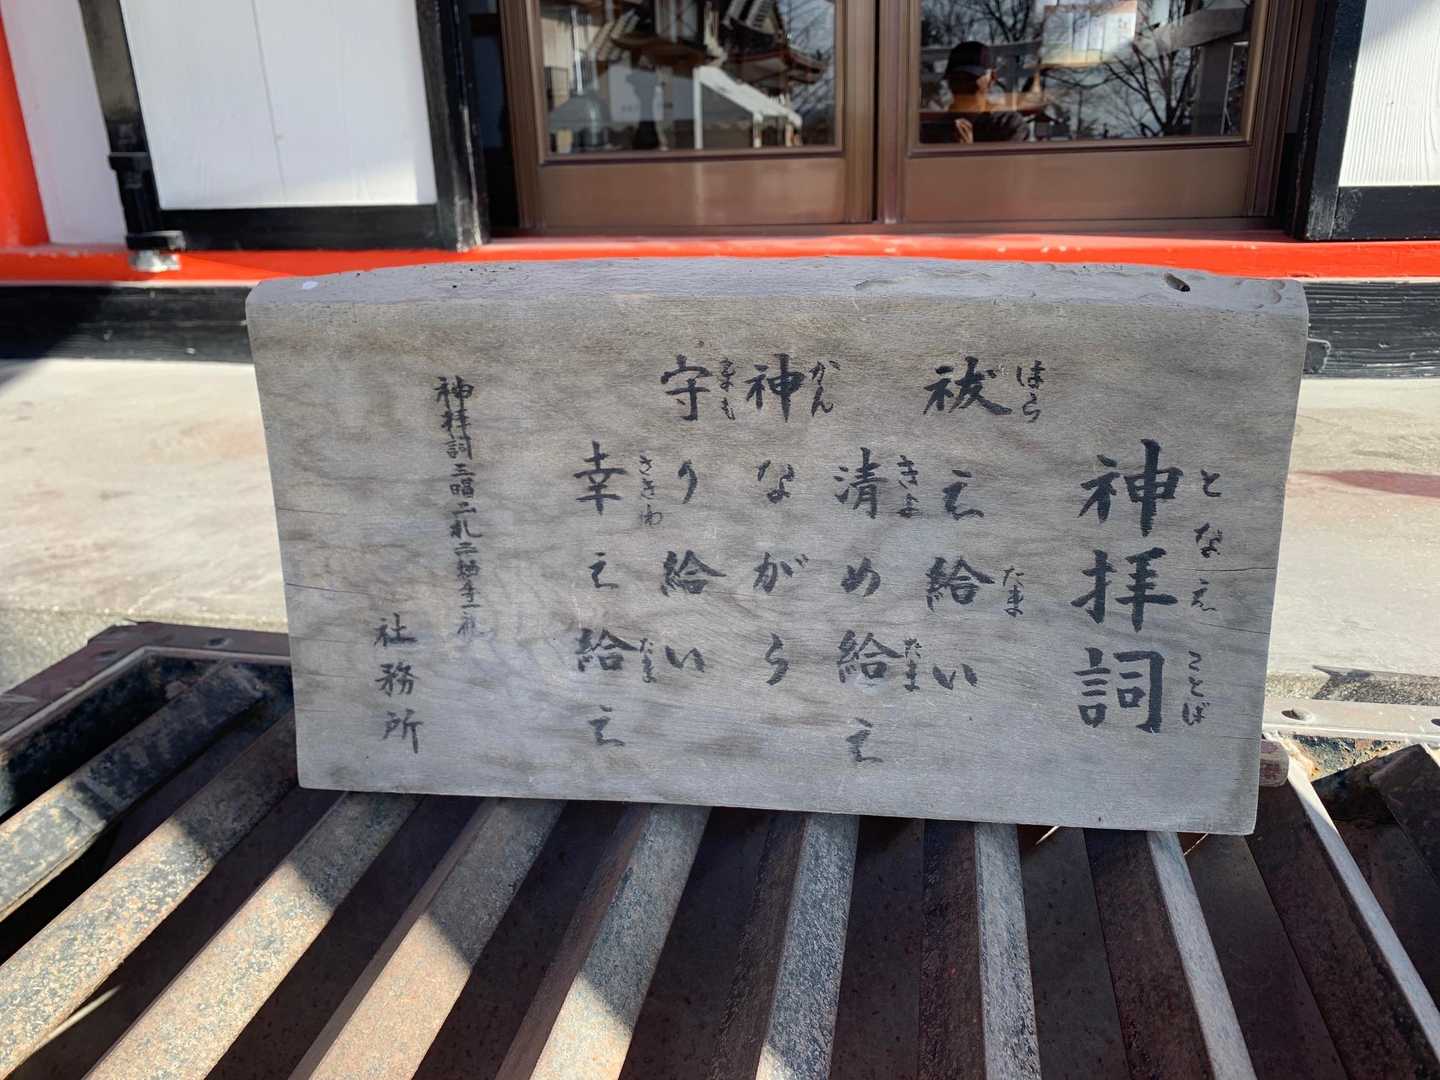 神拝詞
となえことば
祓え給い
はら たま
清め給え
きよ たま
神ながら
かん
守り給い
まも
幸え給え
さきわ たま
神拝詞三唱二礼二拍手一礼
社務所